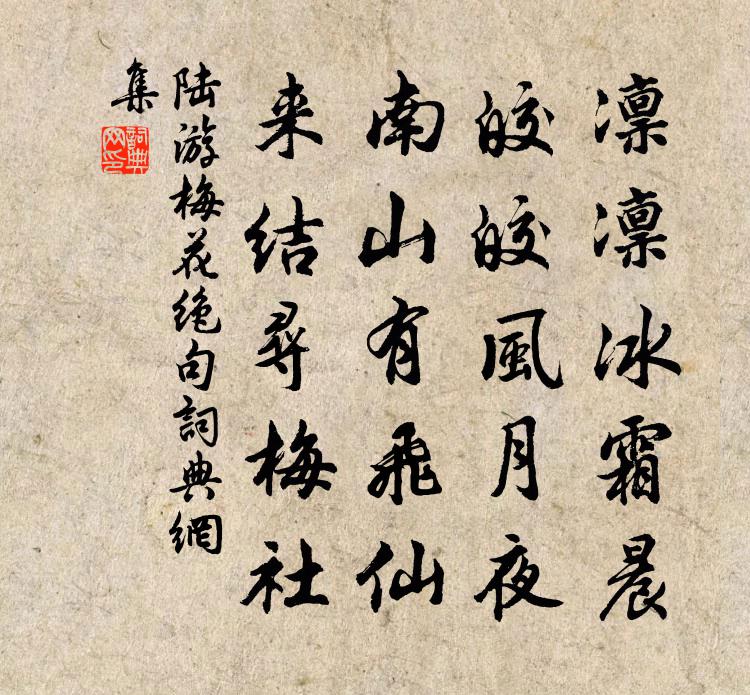 凛凛冰霜晨
皎皎風月夜
南山有飛仙
来结尋梅社
陆游梅花绝句詞典網
集
詞典网印